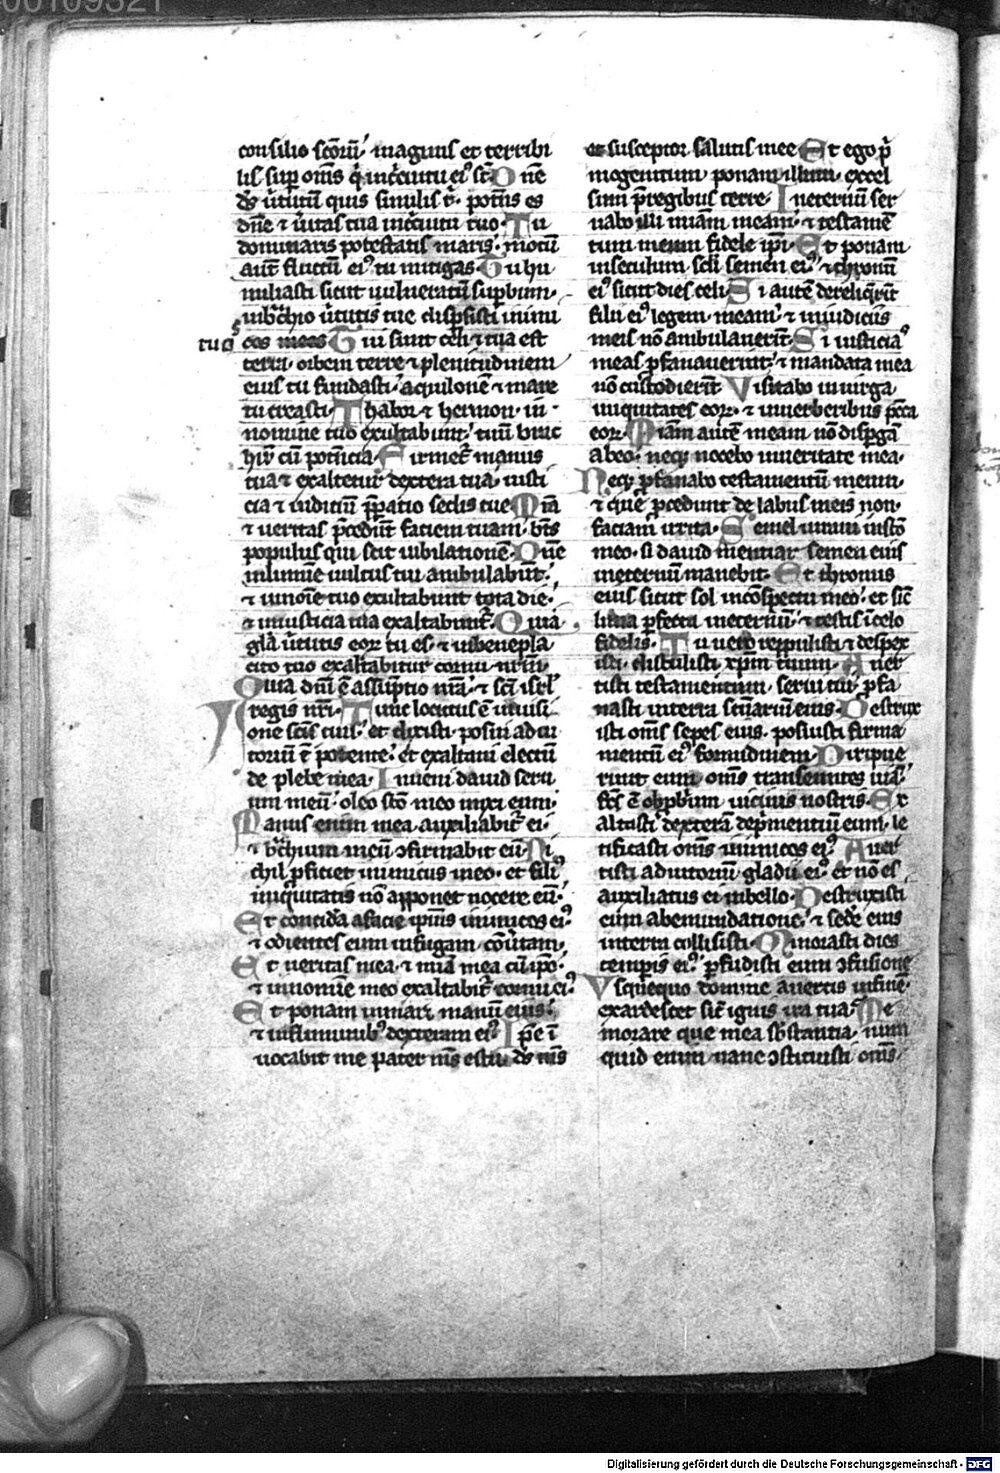 00109321
consilio scōrū· magnus et terribi
lis sup om̄s q̄ incͥcuitu eiꝰ st̄ Dn̄e
ds̄ ūtutū quis similis t̄· potēs es
dn̄e ⁊ ūitas tua incͥcuitu tuo· Tu
dominaris potestatis maris· motū
aūt fluctuū eiꝰ tu mitigas· Tu hu
miliasti sicut uulneratū supbum·
inbͣchio ūtutis tue dispsisti inimi
tuos cos meos Tui sunt celi ⁊ tua est
terra· orbem terre ⁊ plenitudinem
eius tu fundasti· aquilonē ⁊ mare
tu creasti· Thabor ⁊ hermon· in·
nomine tuo exultabunt· tuū brac
hiū cū potētia· Firmet̄ manus
tua ⁊ exaltetur dextera tua· iusti
cia ⁊ iudiciū p̄patio sedis tue Mia
⁊ ueritas p̄cedūt faciem tuam· bt̄s
populus qui scit iubilationē· Dn̄e
inlumīe uultus tui ambulabūt·
⁊ innoīe tuo exultabunt tota die·
⁊ iniusticia tua exaltabuntͬ· Quia
glā ūtutis eoꝝ tu es· ⁊ inbenepla
cito tuo exaltabitur cornu nr̄m·
Quia dn̄i ē assūptio nrā· ⁊ sc̄i isrl̄
regis nr̄i· Tunc locutus ē inuisi
one scīs tuis· et dixisti· posui adiu
toriū ī potente· et exaltaui electū
de plebe mea· Inueni dauid seru
um meū· oleo scō meo unxi eum·
Manus enim mea auxiliabitͬ ei·
⁊ bͣchium meū ɔfirmabit eū· Ni
chil pficiet inimicus in eo· et filiꝰ
iniquitatis nō apponet nocere eū·
Et concidā a facie ipsius inimicos eiꝰ
⁊ odientes eum in fugam cōūtam·
Et ueritas mea· ⁊ mīa mea cū ipo·
⁊ innomīe meo exaltabitͬ cornu eiꝰ
Et ponam in mari manū eius·
⁊ influminibꝰ dexteram eiꝰ Ipse ī
uocabit me pater ms̄ es tu· ds̄ ms̄
et susceptor salutis mee Et ego pͥ
mogenitum ponam illum· excel
sum p̄ regibus terre· Ineternū ser
uabo illi mīam meam· ⁊ testamē
tum meum fidele ipi· Et ponam
inseculum scli semen eiꝰ· ⁊ thronū
eiꝰ sicut dies celi· Si autē dereliqͥrīt
filii eiꝰ legem meam· ⁊ iniudiciis
meis nō ambulauerīt· Si iusticias
meas pfanauerint· ⁊ mandata mea
nō custodierīt Visitabo in uirga
iniquitates eoꝝ· ⁊ inuerberibus pccā
eoꝝ· Mīam autē meam nō dispgā
ab eo· neqꝫ nocebo inueritate mea·
Neqꝫ pfanabo testamentum meum·
⁊ que pcedunt de labiis meis non·
faciam irrita· Semel iuraui inscō
meo· si dauid mentiar semen eius
ineternū manebit· Et thronus
eius sicut sol incōspectu meo· et sic̄
luna pfecta ineternū· ⁊ testis ī celo
fidelis· Tu uero reppulisti ⁊ despex
isti· distulisti xpm tuum· Auer
tisti testamentum serui tui· pfa
nasti interra sc̄uariū eius· Destrux
isti om̄s sepes eius· posuisti firma
mentū eiꝰ formidinem· Diripue
runt eum om̄s transeuntes uiā·
fcs̄ ē obpbͥum uicinis nostris· Ex
altasti dexterā depͥmentiū eum· le
tificasti om̄s inimicos eiꝰ· Auer
tisti adiutoriū gladii eiꝰ· et nō es
auxiliatus ei inbello· Destruxisti
eum ab emundatione· ⁊ sedē eius
interra collisisti· Minorasti dies
tempis eiꝰ· pfudisti eum ɔfusione
Vsquequo domine auertis infinē·
exardescet sic̄ ignis ira tua· Me
morare que mea sb̄stantia· num
quid enim uane ɔstituisti om̄s·
Digitalisierung gefördert durch die Deutsche Forschungsgemeinschaft - DFG